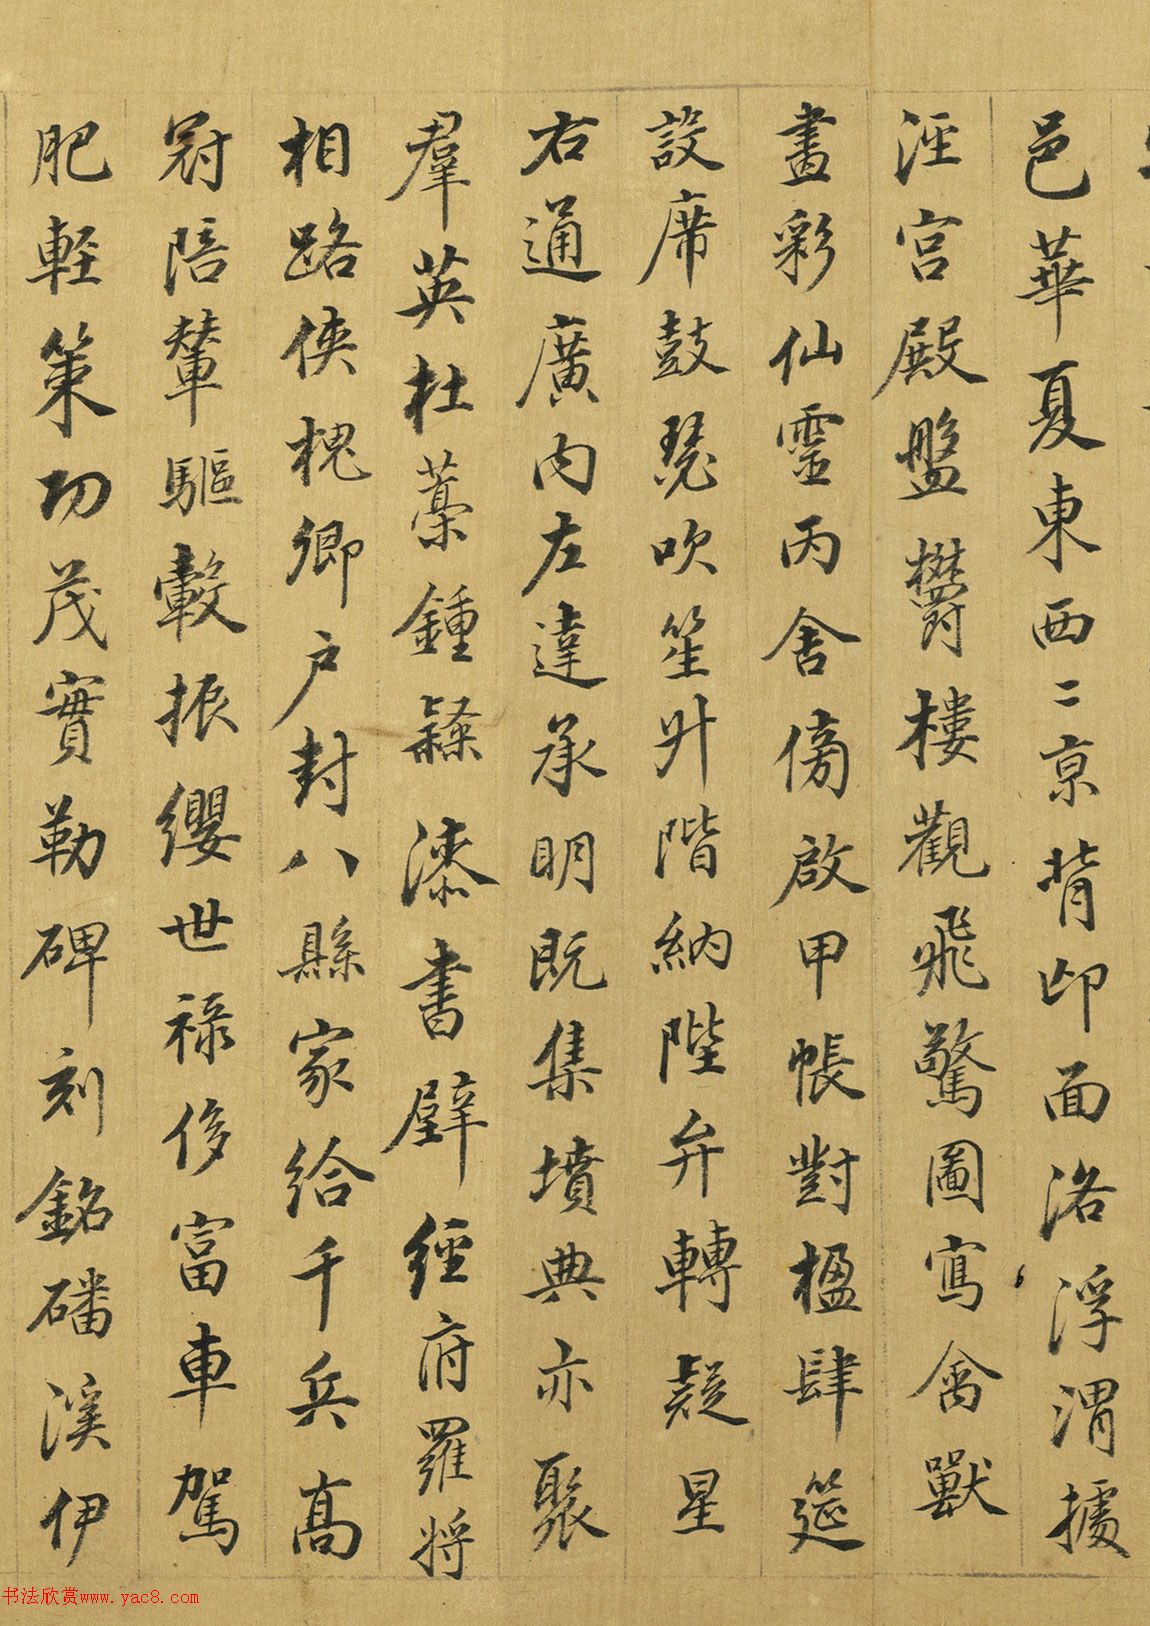 邑華夏東西二京背邙面洛浮渭據
涇宮殿盤欝樓觀飛驚圖寫禽獸
畫彩仙靈丙舍傍啟甲帳對楹肆筵
設席鼓瑟吹笙升階納陛弁轉疑星
右通廣內左達承明既集墳典亦聚
羣英杜藁鍾隸漆書壁經府羅將
相路俠槐卿戶封八縣家給千兵高
冠陪輦驅轂振纓世祿侈富車駕
肥輕策功茂實勒碑刻銘磻溪伊
书法欣赏www.yac8.com